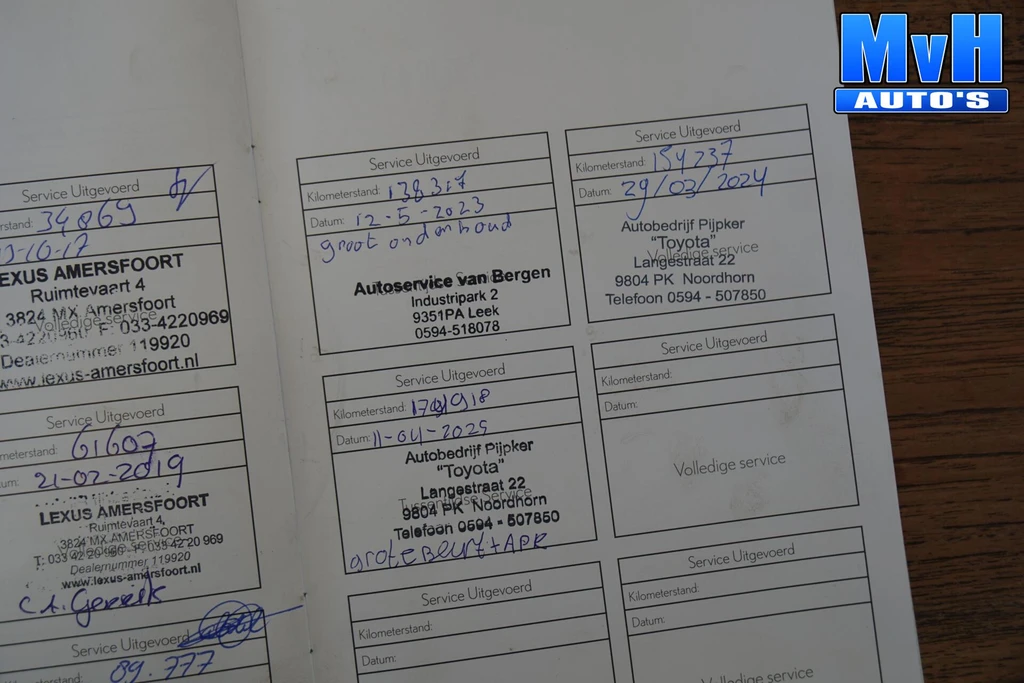 MvH
AUTO'S
Service Uitgevoerd
stand: 34869
-10-17
EXUS AMERSFOORT
Ruimtevaart 4
3824 MX Amersfoort
Volledige service
F: 033-4220969
Dealernummer 119920
www.lexus-amersfoort.nl
Service Uitgevoerd
meterstand: 61607
um: 21-02-2019
LEXUS AMERSFOORT
Ruimtevaart 4,
3824 MX AMERSFOORT
Volledige service
T: 033 42 20 960 - F: 033 42 20 969
Dealernummer 119920
www.lexus-amersfoort.nl
Service Uitgevoerd
meterstand: 89.777
Service Uitgevoerd
Kilometerstand: 138317
Datum: 12-5-2023
groot onderhoud
Autoservice van Bergen
Industripark 2
9351PA Leek
0594-518078
Service Uitgevoerd
Kilometerstand: 154237
Datum: 29/03/2024
Autobedrijf Pijpker
"Toyota"
Volledige service
Langestraat 22
9804 PK Noordhorn
Telefoon 0594 - 507850
Service Uitgevoerd
Kilometerstand:
Datum: 11-04-2025
Autobedrijf Pijpker
"Toyota"
Langestraat 22
Tussentijdse Service
9804 PK Noordhorn
Telefoon 0594 - 507850
grote Beurt + APK
Service Uitgevoerd
Kilometerstand:
Datum:
Volledige service
Service Uitgevoerd
Kilometerstand:
Datum:
Service Uitgevoerd
Kilometerstand:
Datum:
Volledige service